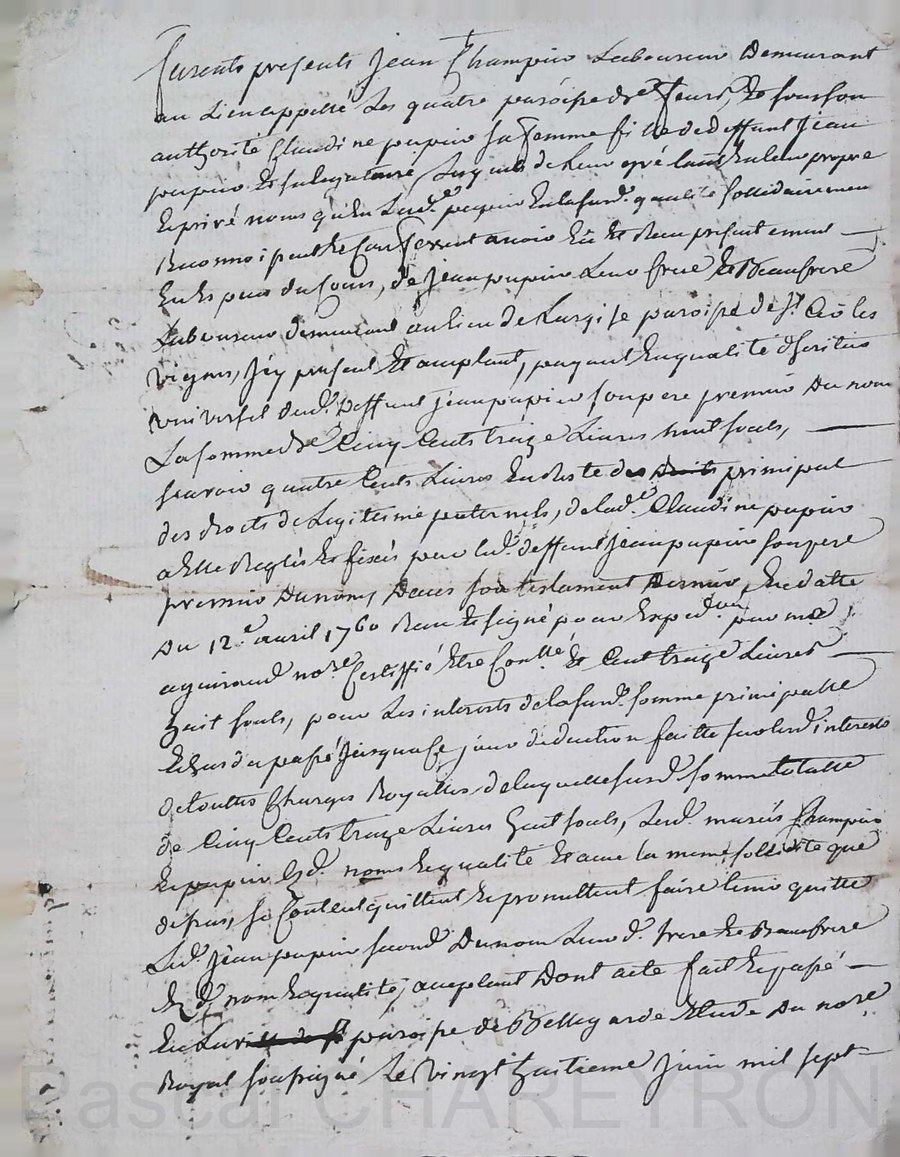 furents presents Jean Champin Laboureur Demeurant
au Lieu appellé Les quatre paroisse de feurs, Et sous son
authorité Claudine poupin sa femme fille de deffunt Jean
poupin Et sa legataire, Lesquels de Leur gré tant En leur propre
Et privé noms qu'En Lad.e poupin En lasusd. qualité sollidairement
Reconnoissent Et Confessent avoir Eû Et Reau presentement
En Espesses du Cours, de Jean poupin Leur frere Et Beaufrere
Laboureur demeurant au lieu de paroisse de St. Cir les
vignes, Icy present Et acceptant, payant En qualité d'heritier
universel dud. Deffunt Jean poupin son pere premier Du nom
La somme de Cinq Cents traize Livres huit souls,
scavoir quatre Cents Livres En Reste des droits principal
des droits de Legitime paternels, de lad.e Claudine poupin
a Elle Reglés Et fixés par led. deffunt Jean poupin son pere
premier Du nom, Dans son testament Dernier, En datte
Du 12e avril 1760 Reau Et signé pour Expedon par me
aguiraud nore Certiffié Etre Conllé Et Cent traize Livres
huit souls, pour Les interests de la susd. somme principalle
Echus du passé Jusqua Ce jour deduction faitte sur lesd. interests
de touttes Charges Royalles, de laquelle susd. somme totalle
de Cinq Cents traize Livres huit souls, Lesd. mariés Champin
Et poupin Esd. noms Et qualité Et avec la meme sollidité que
dessus, se Contentent quittent Et promettent faire tenir quitte
Led. Jean poupin second Du nom Leurd. frere Et Beaufrere
Esd. nom Et qualité, acceptant Dont acte fait Et passé
En La paroisse de Bellegarde Etude Du nore
Royal soussigné Le Vingt huitieme Juin mil sept
Pascal CHAREYRON